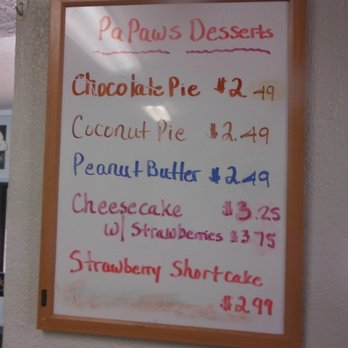 PaPaws Desserts
Chocolate Pie $2.49
Coconut Pie $2.49
Peanut Butter $2.49
Cheesecake $3.25
w/ Strawberries $3.75
Strawberry Shortcake
$2.99